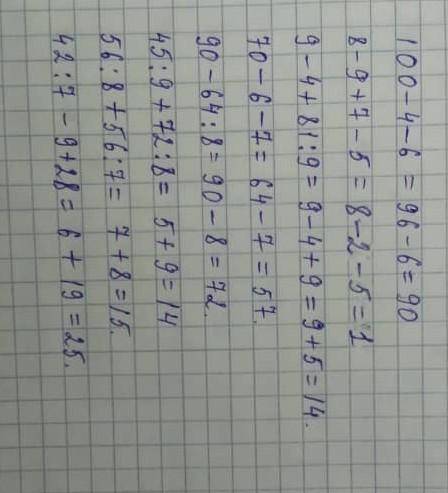 100-4-6 = 96-6=90
8-9+7-5 = 8-2-5=1
9-4+81:9 = 9-4+9 = 9+5=14.
70-6-7= 64-7 = 57.
90-64:8= 90-8=72.
45:9+72:8= 5+9=14
56:8+56:7= 7+8=15.
42:7-9+28= 6+19=25.